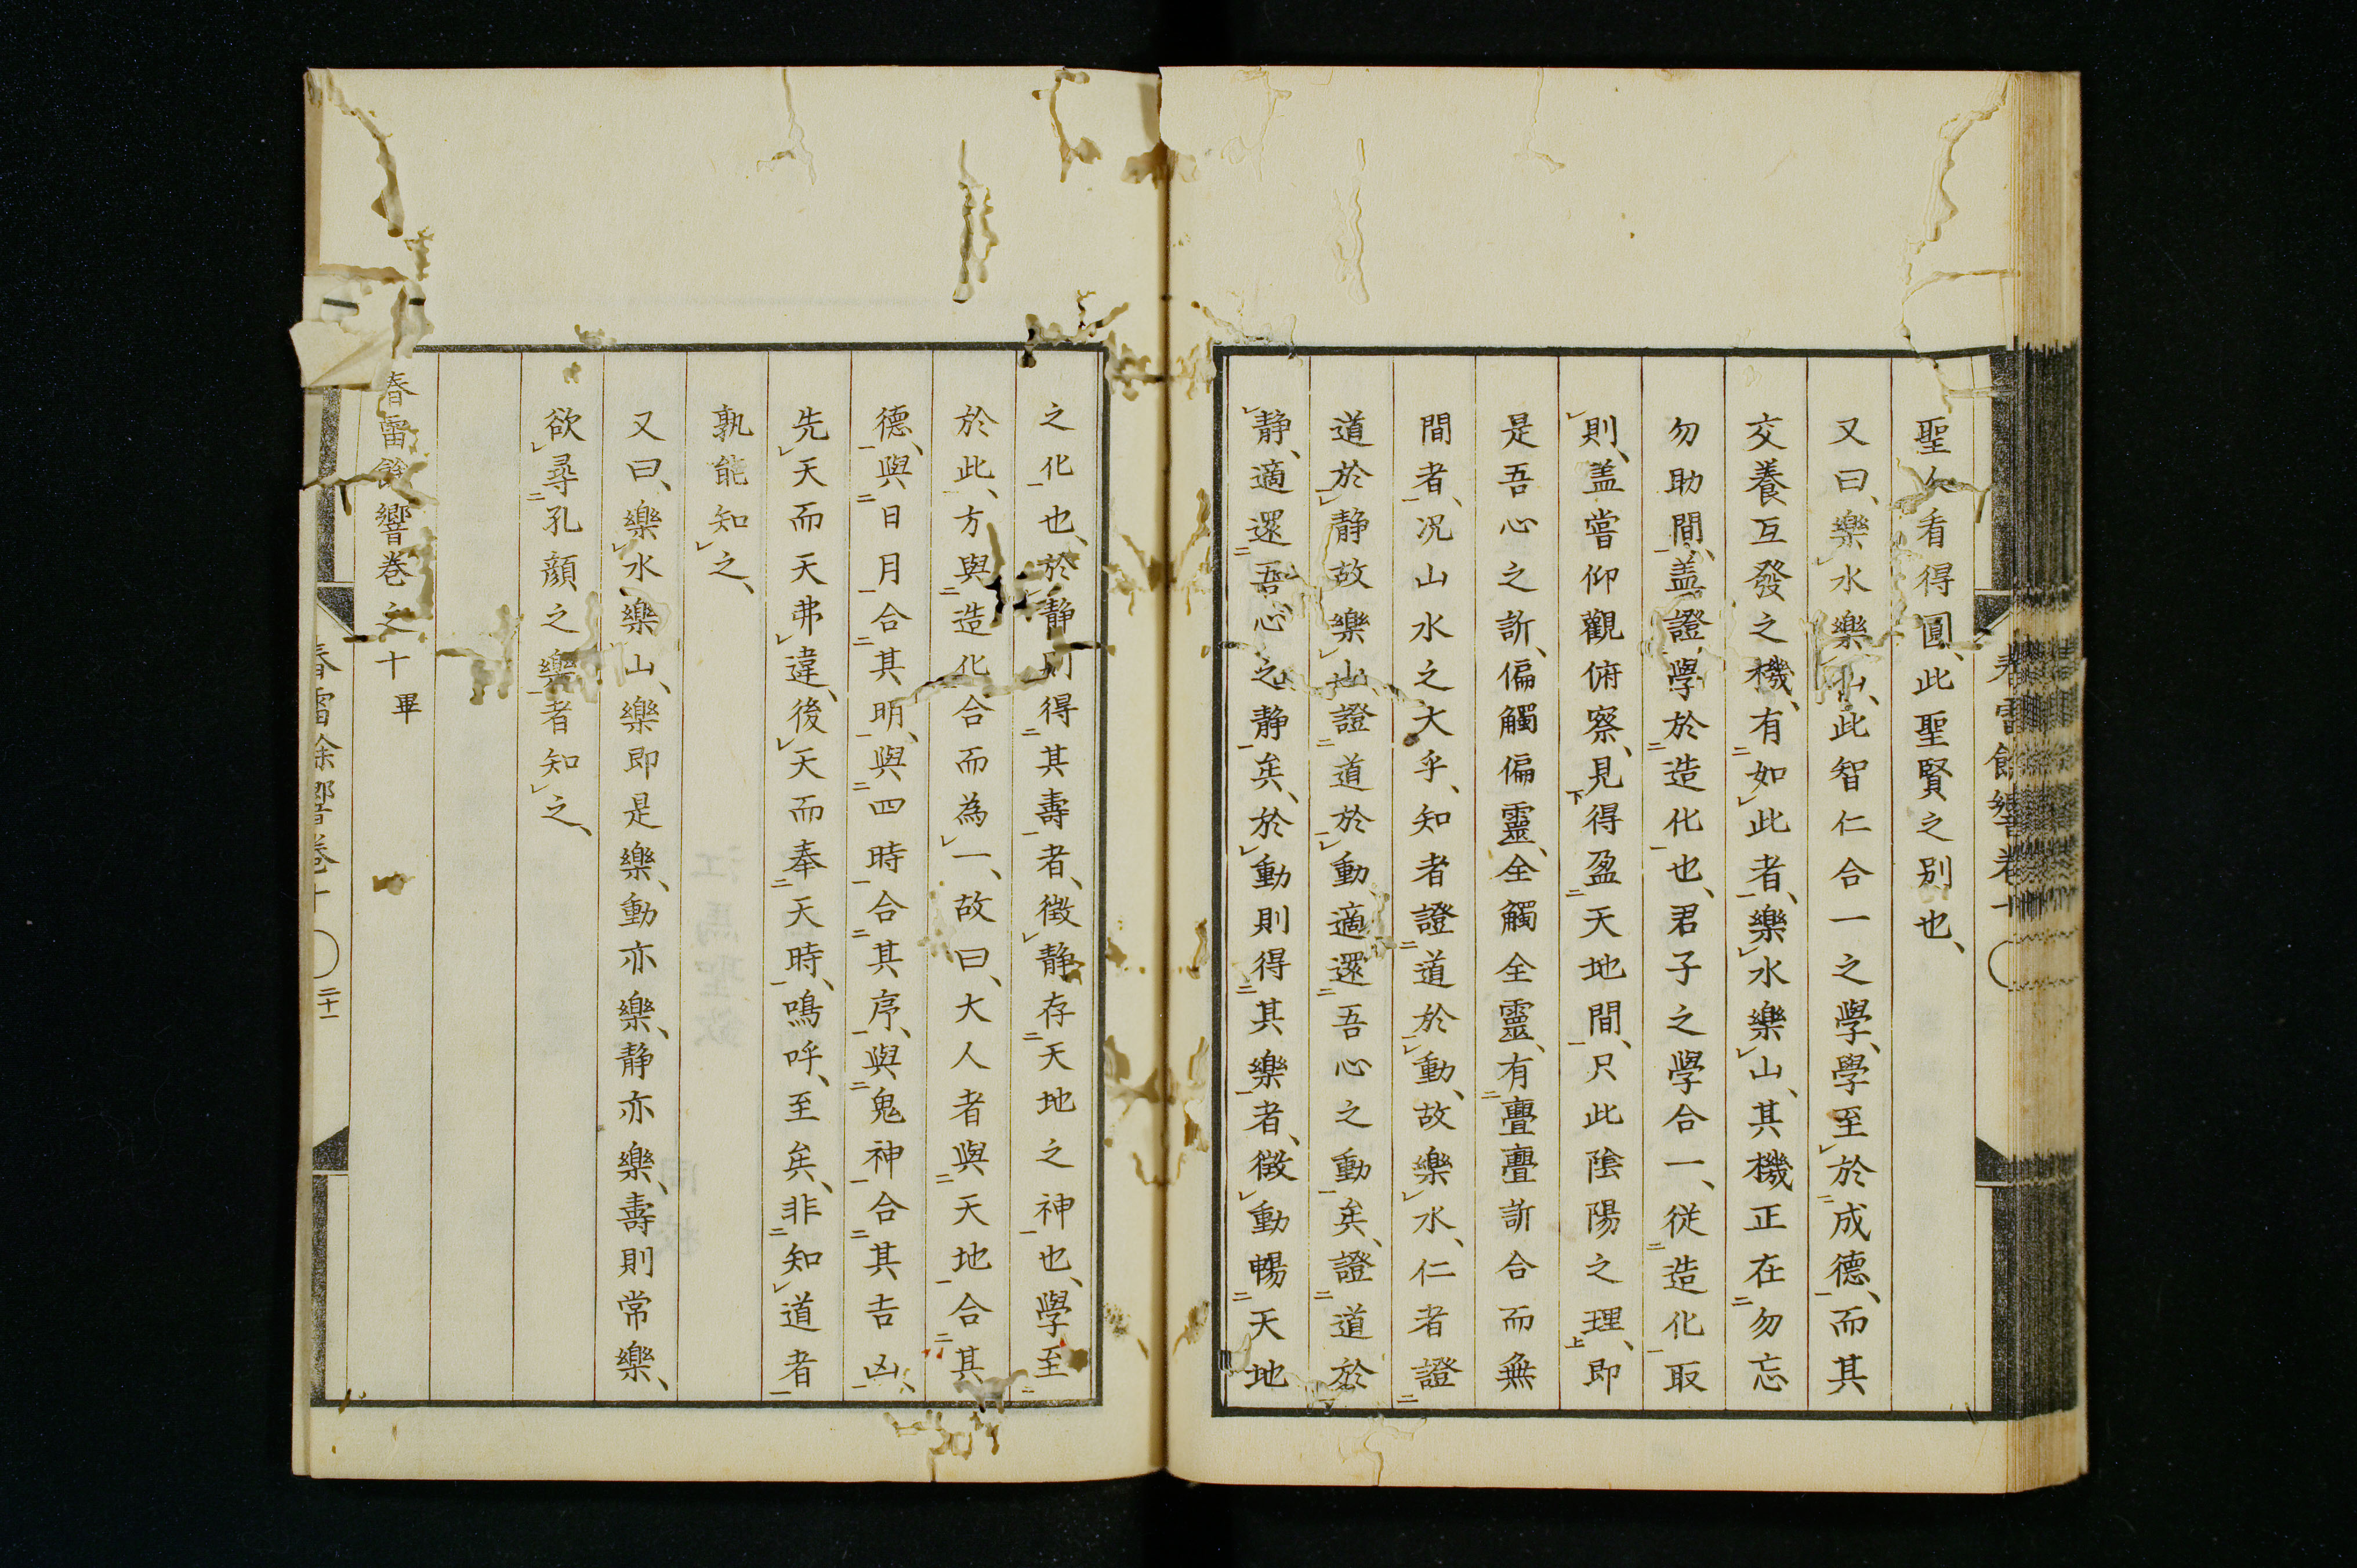 聖欠看得圓、此聖賢之別也、
又曰、樂水樂山、此智仁合一之學、學至於成德、而其
交養互發之機、有如此者、樂水樂山、其機正在勿忘
勿助間、盖證學於造化也、君子之學合一、從造化取
則、盖嘗仰觀俯察、見得盈天地間、只此陰陽之理、即
是吾心之訢、偏觸偏靈、全觸全靈、有亹亹訢合而無
間者、况山水之大乎、知者證道於動、故樂水、仁者證
道於静故樂山、證道於動、適還吾心之動矣、證道於
静、適還吾心之静矣、於動則得其樂者、徵動暢天地
之化也、於静則得其壽者、徵静存天地之神也、學至
於此、方與造化合而為一、故曰、大人者與天地合其
德、與日月合其明、與四時合其序、與鬼神合其吉凶、
先天而天弗違、後天而奉天時、嗚呼、至矣、非知道者
孰能知之、
又曰、樂水、樂山、樂即是樂、動亦樂、静亦樂、壽則常樂、
欲尋孔顔之樂者知之、
春雷餘響巻之十 畢
春雷餘響巻十
二十一